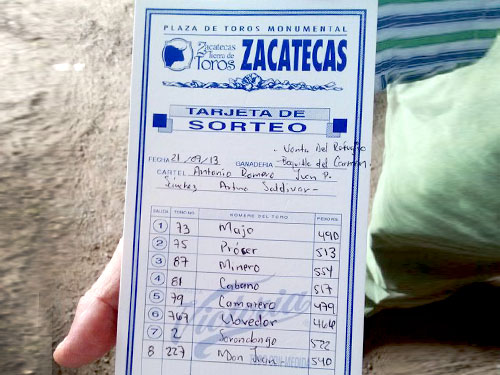 PLAZA DE TOROS MONUMENTAL
Zacatecas
tierra de
Toros
ZACATECAS
TARJETA DE
SORTEO
. Venta Del Refugio
FECHA 21/09/13 GANADERIA Boquilla del Carmen.
CARTEL Antonio Romero Juan P.
Sánchez Arturo Saldivar-
SALIDA TORO NO. NOMBRE DEL TORO PESOKG.
1 73 Majo 490
2 75 Prócer 513
3 87 Minero 554
4 81 Cabano 517
5 79 Camarero 479
6 767 Llovedor 466
7 2 522
8 227 Don Juan 540
Victoria